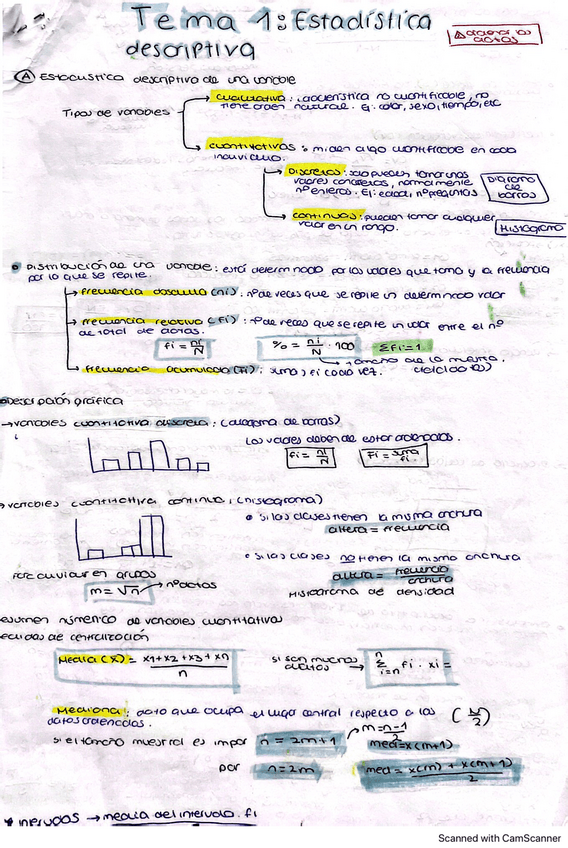 Tema 1: Estadística
descriptiva
A Estadística descriptiva de una variable
Tipos de variables
cualitativa: característica no cuantificable, no
tiene orden natural. Ej: color, sexo, tiempo, etc
cuantitativas: miden algo cuantificable en cada
individuo.
Discretas: solo pueden tomar unos
valores concretos, normalmente
nº enteros. Ej: edad, nº preguntas
Diagrama
de
barras
continuas: pueden tomar cualquier
valor en un rango.
Histograma
Distribución de una variable: está determinado por los valores que toma y la frecuencia
por lo que se repite.
Frecuencia absoluta (ni): nº de veces que se repite un determinado valor
Frecuencia relativa (fi): nº de veces que se repite un valor entre el nº
de total de datos.
fi = ni/N
% = ni/N · 100
Σfi=1
tamaño de la muestra.
Frecuencia acumulada (Fi): suma, fi cada vez.
Descripción gráfica
→variables cuantitativa discreta: (diagrama de barras)
Los valores deben de estar ordenados.
fi = ni/N
Fi = suma fi
variables cuantitativa continua: (histograma)
si las clases tienen la misma anchura
altura = frecuencia
si las clases no tienen la misma anchura
altura = frecuencia/anchura
Histograma de densidad
m = √n → nº datos
esumen númerico de variables cuantitativas
edidas de centralización
Media (x) = x1+x2+x3+xn/n
si son muchos
datos
n Σ i=n fi · xi =
Mediana: dato que ocupa el lugar central respecto a los
datos ordenados.
(N/2)
si el tamaño muestral es impar n = 2m+1
m = n-1/2
med=x(m+1)
par n=2m
med = x(m) + x(m+1)/2
* intervalos → media del intervalo. fi
Scanned with CamScanner